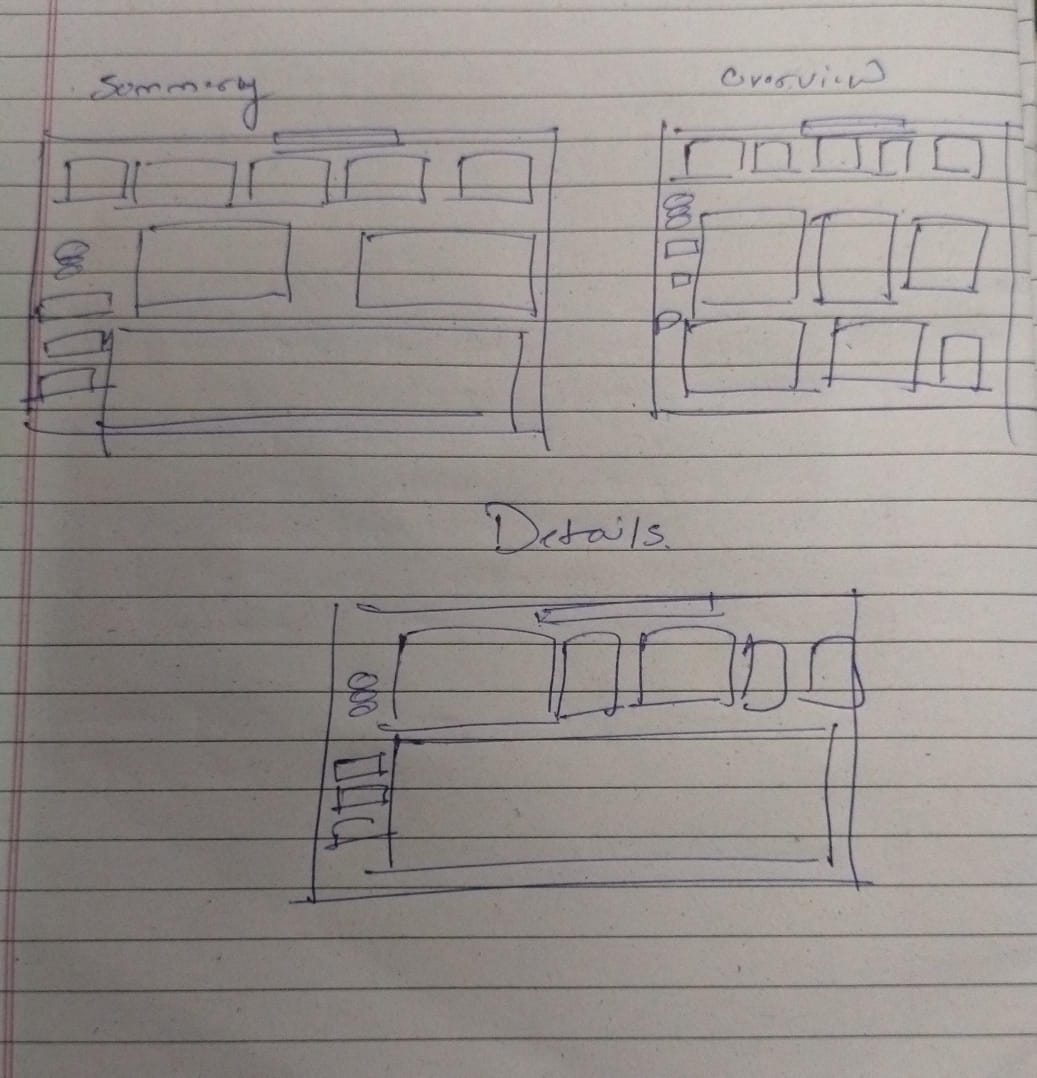 Sommery
Overview
Details.